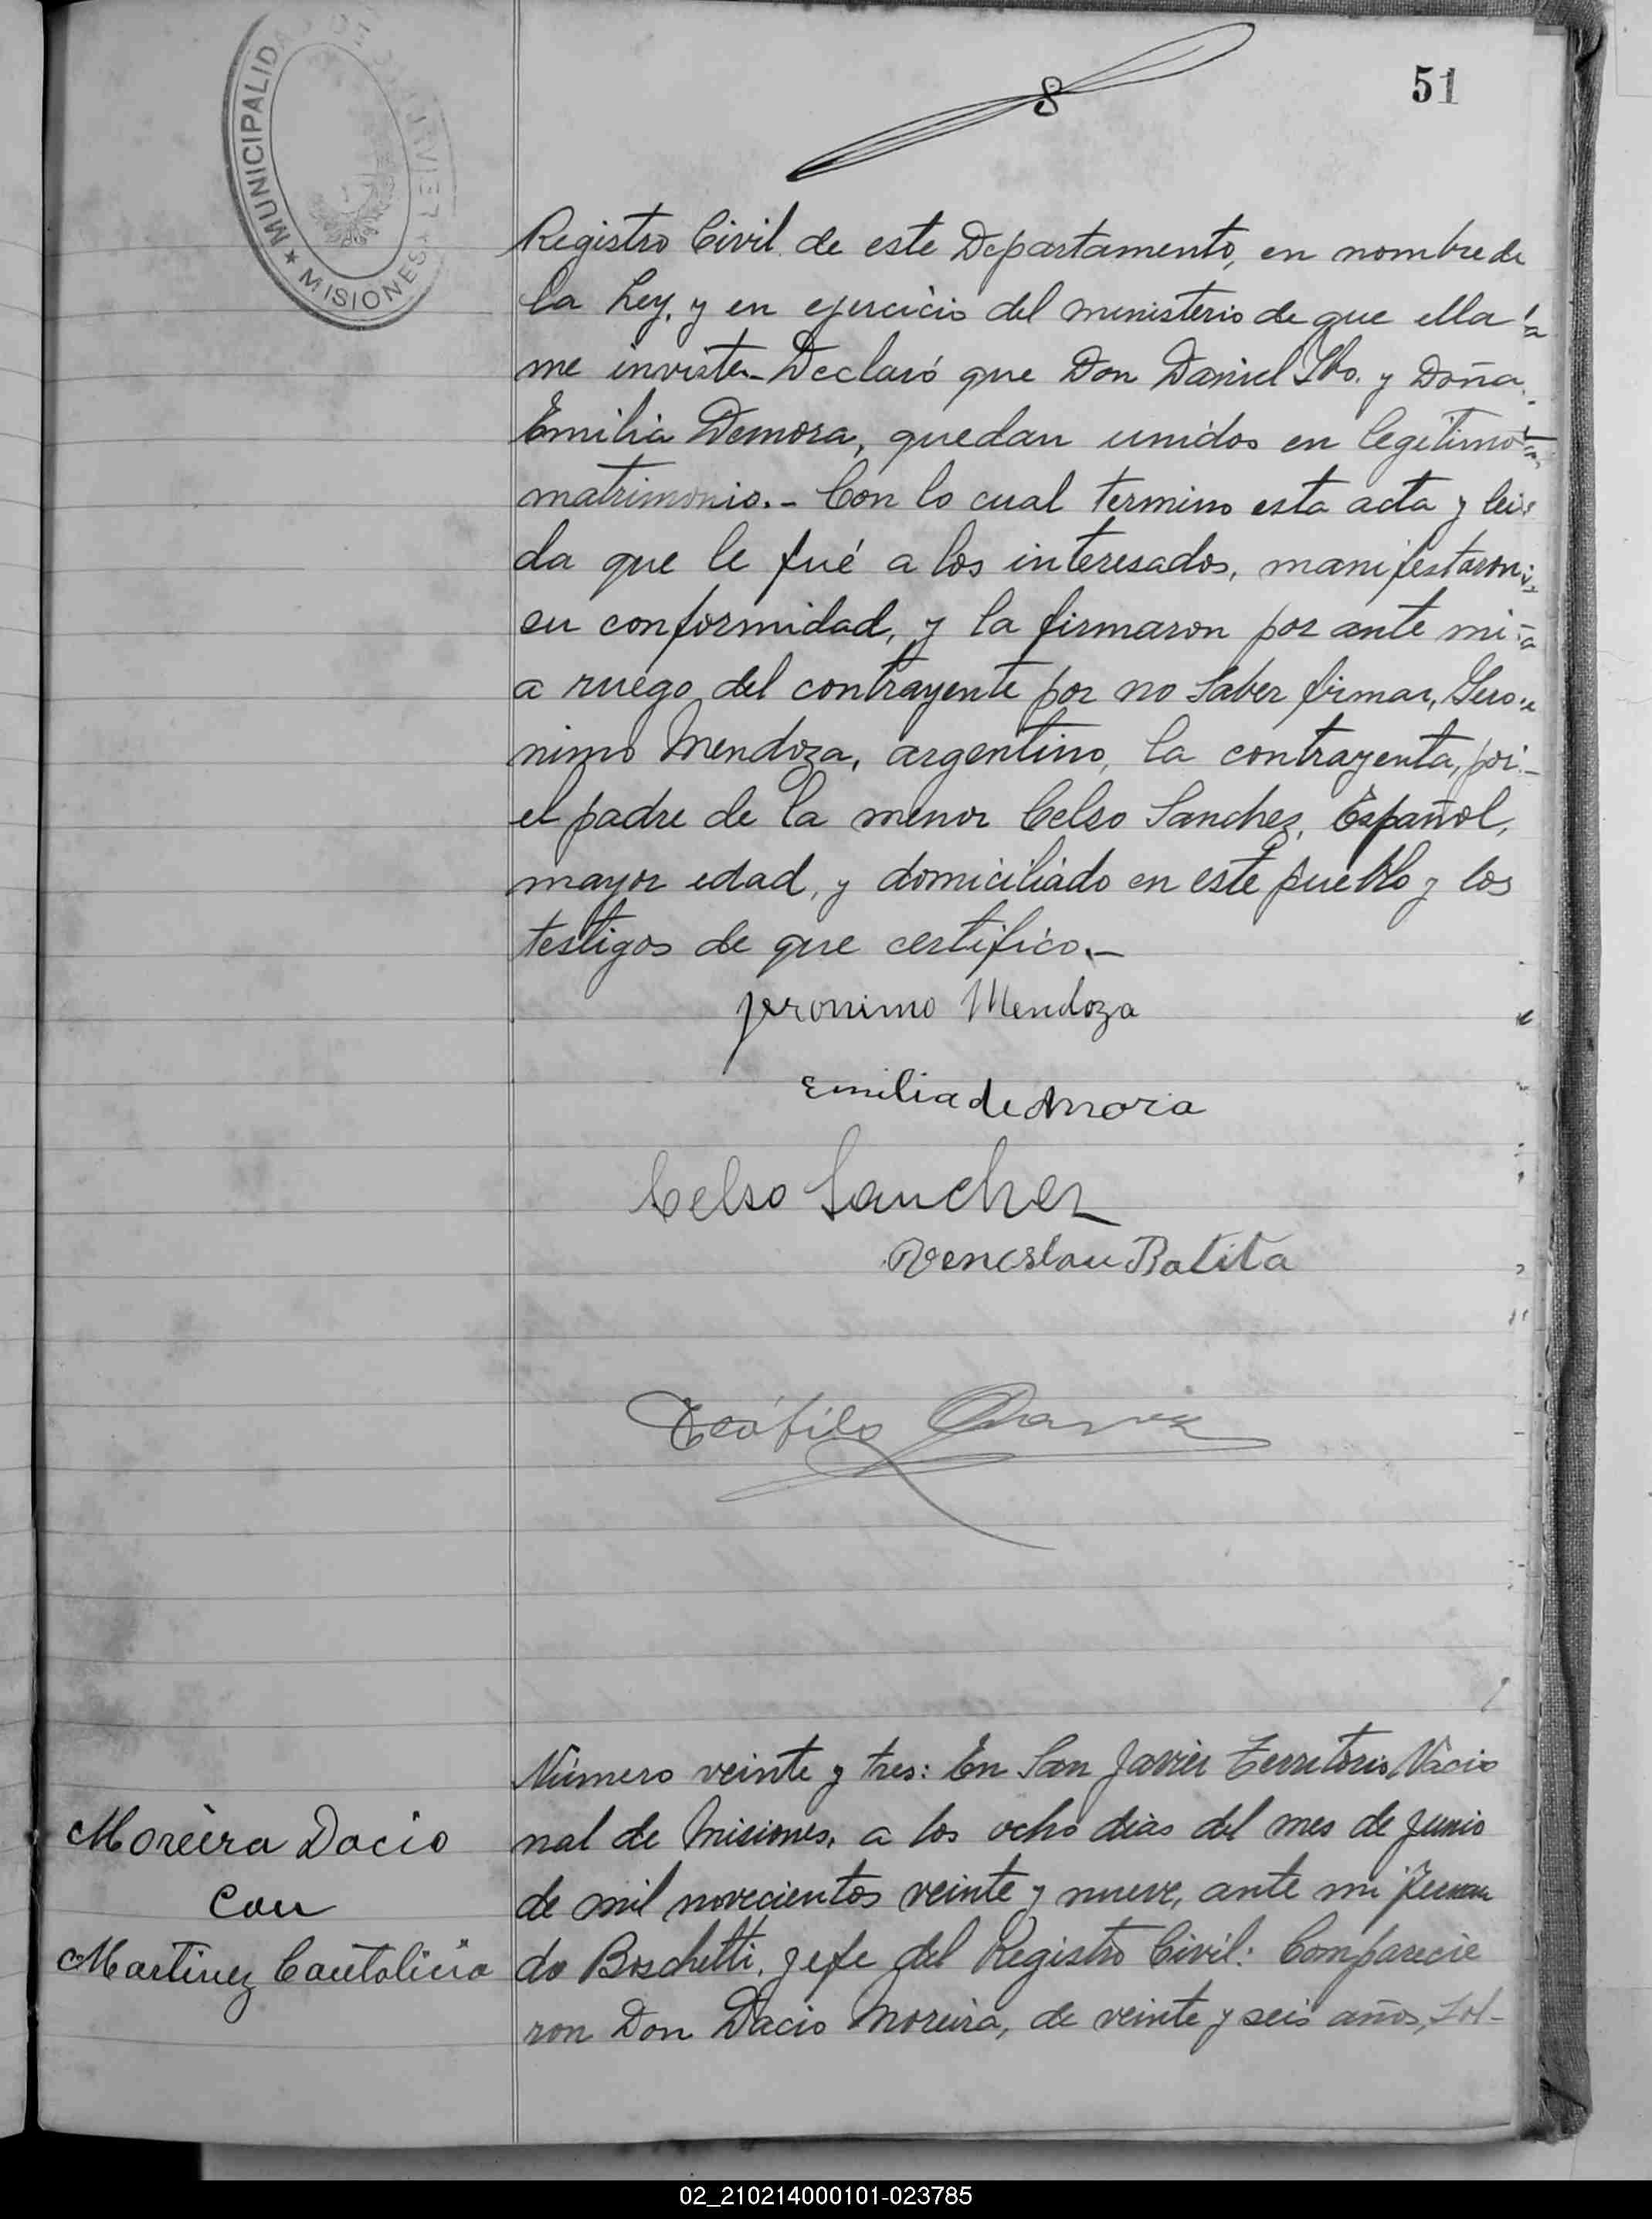 51
MUNICIPALIDAD
MISIONES
Registro Civil de este Departamento, en nombre de
la Ley, y en ejercicio del ministerio de que ella
me inviste.- Declaró que Don Daniel y Doña
Emilia Demora, quedan unidos en legítimo
matrimonio.- Con lo cual termino esta acta y lei
da que le fué a los interesados, manifestaron
su conformidad, y la firmaron por ante mi
a ruego del contrayente por no saber firmar, Gero
nimo Mendoza, argentino, la contrayenta, por
el padre de la menor Celso Sanchez, Español,
mayor edad, y domiciliado en este pueblo y los
testigos de que certifico.-
Jeronimo Mendoza
Emilia de Mora
Celso Sanchez
Venceslau Batita
Teófilo
Número veinte y tres: En San Javier Territorio Nacio
nal de Misiones, a los ocho dias del mes de Junio
de mil novecientos veinte y nueve, ante mi Fernan
do Boschetti, Jefe del Registro Civil: Comparecie
ron Don Dacio Moreira, de veinte y seis años, sol-
Moreira Dacio
con
Martinez Cantalicia
02_210214000101-023785